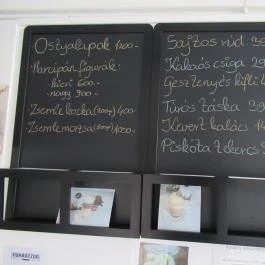 Ostyalapok 1200-
Marcipán figurák:
- kicsi 600-
- nagy 900-
Zsemle kocka (200gr) 400
Zsemlemorzsa (500gr) 1000-
Sajtos rúd 35
Kakaós csiga 29
Gesztenyés kifli 4
Túrós táska 39
Kevert kalács 14
Piskóta tekercs S